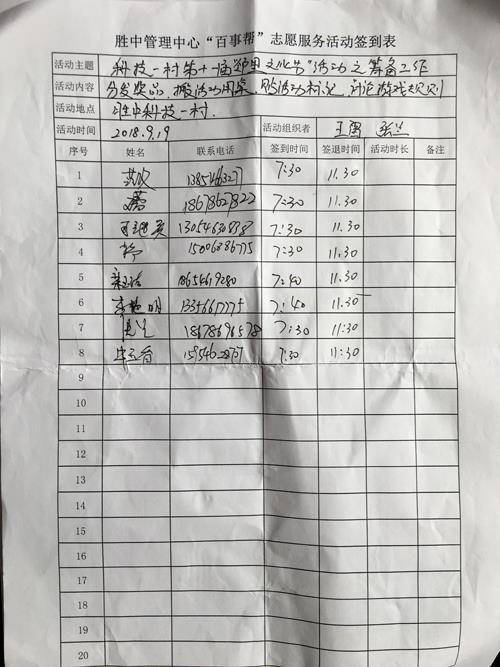 胜中管理中心“百事帮”志愿服务活动签到表
活动主题 科技一村第十一届邻里文化节”活动之筹备工作
活动内容 分发奖品、搬活动用桌、贴活动标记、讨论游戏规则
活动地点 胜中科技一村.
活动时间 2018.9.19 活动组织者 王 张兰
序号 姓名 联系电话 签到时间 签退时间 活动时长 备注
1 7:30 11.30
2 18678627822 7:30 11.30
3 13054630888 7:30 11.30
4 15006886775 7:30 11:30
5 18654619280 7:40 11.30
6 李慧明 13356617775 7:40 11.30
7 18678696578 7:30 11:30
8 7:30 11:30
9
10
11
12
13
14
15
16
17
18
19
20